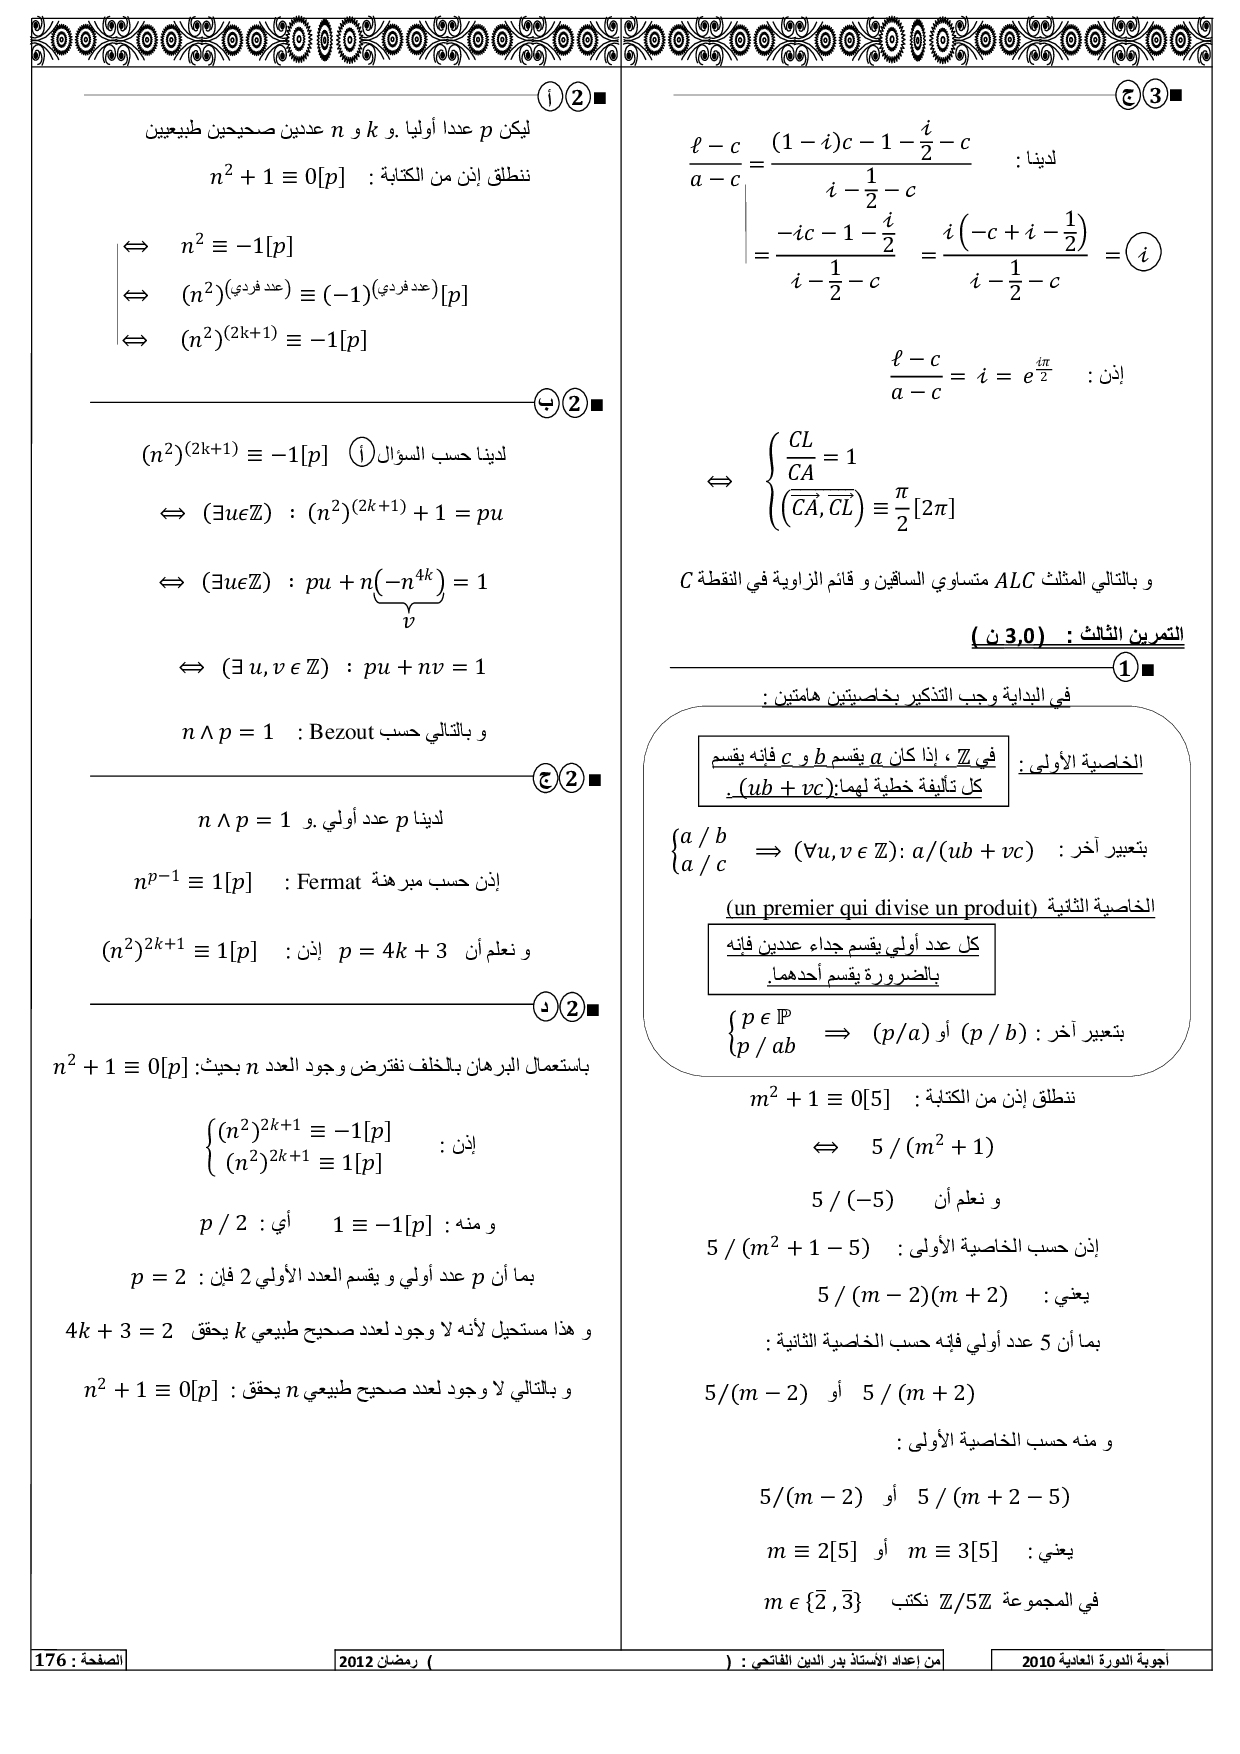 3 ج
لدينا : $\frac{\ell - c}{a - c} = \frac{(1 - i)c - 1 - \frac{i}{2} - c}{i - \frac{1}{2} - c}$
$= \frac{-ic - 1 - \frac{i}{2}}{i - \frac{1}{2} - c} = \frac{i\left(-c + i - \frac{1}{2}\right)}{i - \frac{1}{2} - c} = i$
إذن : $\frac{\ell - c}{a - c} = i = e^{\frac{i\pi}{2}}$
$\Leftrightarrow \begin{cases} \frac{CL}{CA} = 1 \\ \left(\overrightarrow{CA}, \overrightarrow{CL}\right) \equiv \frac{\pi}{2}[2\pi] \end{cases}$
و بالتالي المثلث ALC متساوي الساقين و قائم الزاوية في النقطة C
التمرين الثالث : ( 3,0 ن )
1
في البداية وجب التذكير بخاصيتين هامتين :
الخاصية الأولى : في ℤ ، إذا كان a يقسم b و c فإنه يقسم
كل تأليفة خطية لهما:(ub + vc) .
بتعبير آخر : $\begin{cases} a / b \\ a / c \end{cases} \Rightarrow (\forall u, v \epsilon ℤ): a/(ub + vc)$
الخاصية الثانية (un premier qui divise un produit)
كل عدد أولي يقسم جداء عددين فإنه
بالضرورة يقسم أحدهما.
بتعبير آخر : $\begin{cases} p \epsilon ℙ \\ p / ab \end{cases} \Rightarrow (p/a)$ أو $(p / b)$
ننطلق إذن من الكتابة : $m^2 + 1 \equiv 0[5]$
$\Leftrightarrow 5 / (m^2 + 1)$
و نعلم أن $5 / (-5)$
إذن حسب الخاصية الأولى : $5 / (m^2 + 1 - 5)$
يعني : $5 / (m - 2)(m + 2)$
بما أن 5 عدد أولي فإنه حسب الخاصية الثانية :
$5/(m - 2)$ أو $5 / (m + 2)$
و منه حسب الخاصية الأولى :
$5/(m - 2)$ أو $5 / (m + 2 - 5)$
يعني : $m \equiv 2[5]$ أو $m \equiv 3[5]$
في المجموعة ℤ/5ℤ نكتب $m \epsilon \{\bar{2} , \bar{3}\}$
2 أ
ليكن p عددا أوليا .و k و n عددين صحيحين طبيعيين
ننطلق إذن من الكتابة : $n^2 + 1 \equiv 0[p]$
$\Leftrightarrow n^2 \equiv -1[p]$
$\Leftrightarrow (n^2)^{(عدد فردي)} \equiv (-1)^{(عدد فردي)}[p]$
$\Leftrightarrow (n^2)^{(2k+1)} \equiv -1[p]$
2 ب
لدينا حسب السؤال أ $(n^2)^{(2k+1)} \equiv -1[p]$
$\Leftrightarrow (\exists u \epsilon ℤ) : (n^2)^{(2k+1)} + 1 = pu$
$\Leftrightarrow (\exists u \epsilon ℤ) : pu + n\underbrace{(-n^{4k})}_{v} = 1$
$\Leftrightarrow (\exists u, v \epsilon ℤ) : pu + nv = 1$
و بالتالي حسب Bezout : $n \wedge p = 1$
2 ج
لدينا p عدد أولي .و $n \wedge p = 1$
إذن حسب مبرهنة Fermat : $n^{p-1} \equiv 1[p]$
و نعلم أن $p = 4k + 3$ إذن : $(n^2)^{2k+1} \equiv 1[p]$
2 د
باستعمال البرهان بالخلف نفترض وجود العدد n بحيث: $n^2 + 1 \equiv 0[p]$
إذن : $\begin{cases} (n^2)^{2k+1} \equiv -1[p] \\ (n^2)^{2k+1} \equiv 1[p] \end{cases}$
و منه : $1 \equiv -1[p]$ أي : $p / 2$
بما أن p عدد أولي و يقسم العدد الأولي 2 فإن : $p = 2$
و هذا مستحيل لأنه لا وجود لعدد صحيح طبيعي k يحقق $4k + 3 = 2$
و بالتالي لا وجود لعدد صحيح طبيعي n يحقق : $n^2 + 1 \equiv 0[p]$
أجوبة الدورة العادية 2010
من إعداد الأستاذ بدر الدين الفاتحي : ( ) رمضان 2012
الصفحة : 176